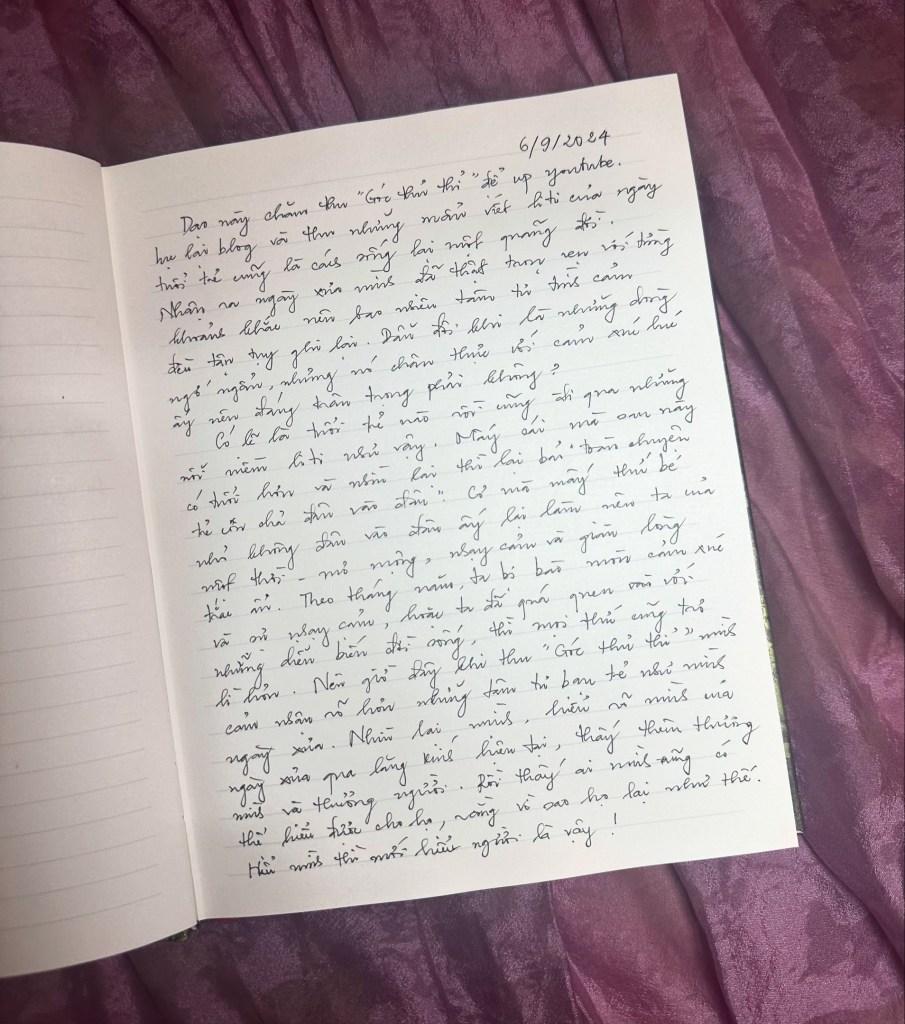 6/9/2024
Dạo này chăm thu "Góc thủ thỉ" để up youtube.
lại blog và thu những mẩu viết li ti của ngày
tuổi trẻ cũng là cách sống lại một quãng đời.
Nhận ra ngày xưa mình đã thật trọn vẹn với từng
khoảnh khắc nên bao nhiêu tâm tư tình cảm
đều tận tụy ghi lại. Dẫu đôi khi là những dòng
ngô nghê, nhưng nó chân thực với cảm xúc lúc
ấy nên đáng trân trọng phải không?
Có lẽ là tuổi trẻ nào rồi cũng đi qua những
nỗi niềm li ti như vậy. Mấy cái mà sau này
có tuổi hơn và nhìn lại thì lại bải "toàn chuyện
trẻ con chả đâu vào đâu". Cơ mà mấy thứ bé
nhỏ không đâu vào đâu ấy lại làm nên ta của
một thời - mơ mộng, nhạy cảm và giàu lòng
trắc ẩn. Theo tháng năm, ta bị bào mòn cảm xúc
và sự nhạy cảm, hoặc ta đã quá quen với
những diễn biến đời sống, thì mọi thứ cũng trở
lì hơn. Nên giờ đây khi thu "Góc thủ thỉ" mình
cảm nhận rõ hơn những tâm tư bạn trẻ như mình
ngày xưa. Nhìn lại mình, hiểu rõ mình của
ngày xưa qua lăng kính hiện tại, thấy thêm thương
mình và thương người. Rồi thấy ai mình cũng có
thể hiểu được cho họ, rằng vì sao họ lại như thế.
Hiểu mình thì mới hiểu người là vậy!